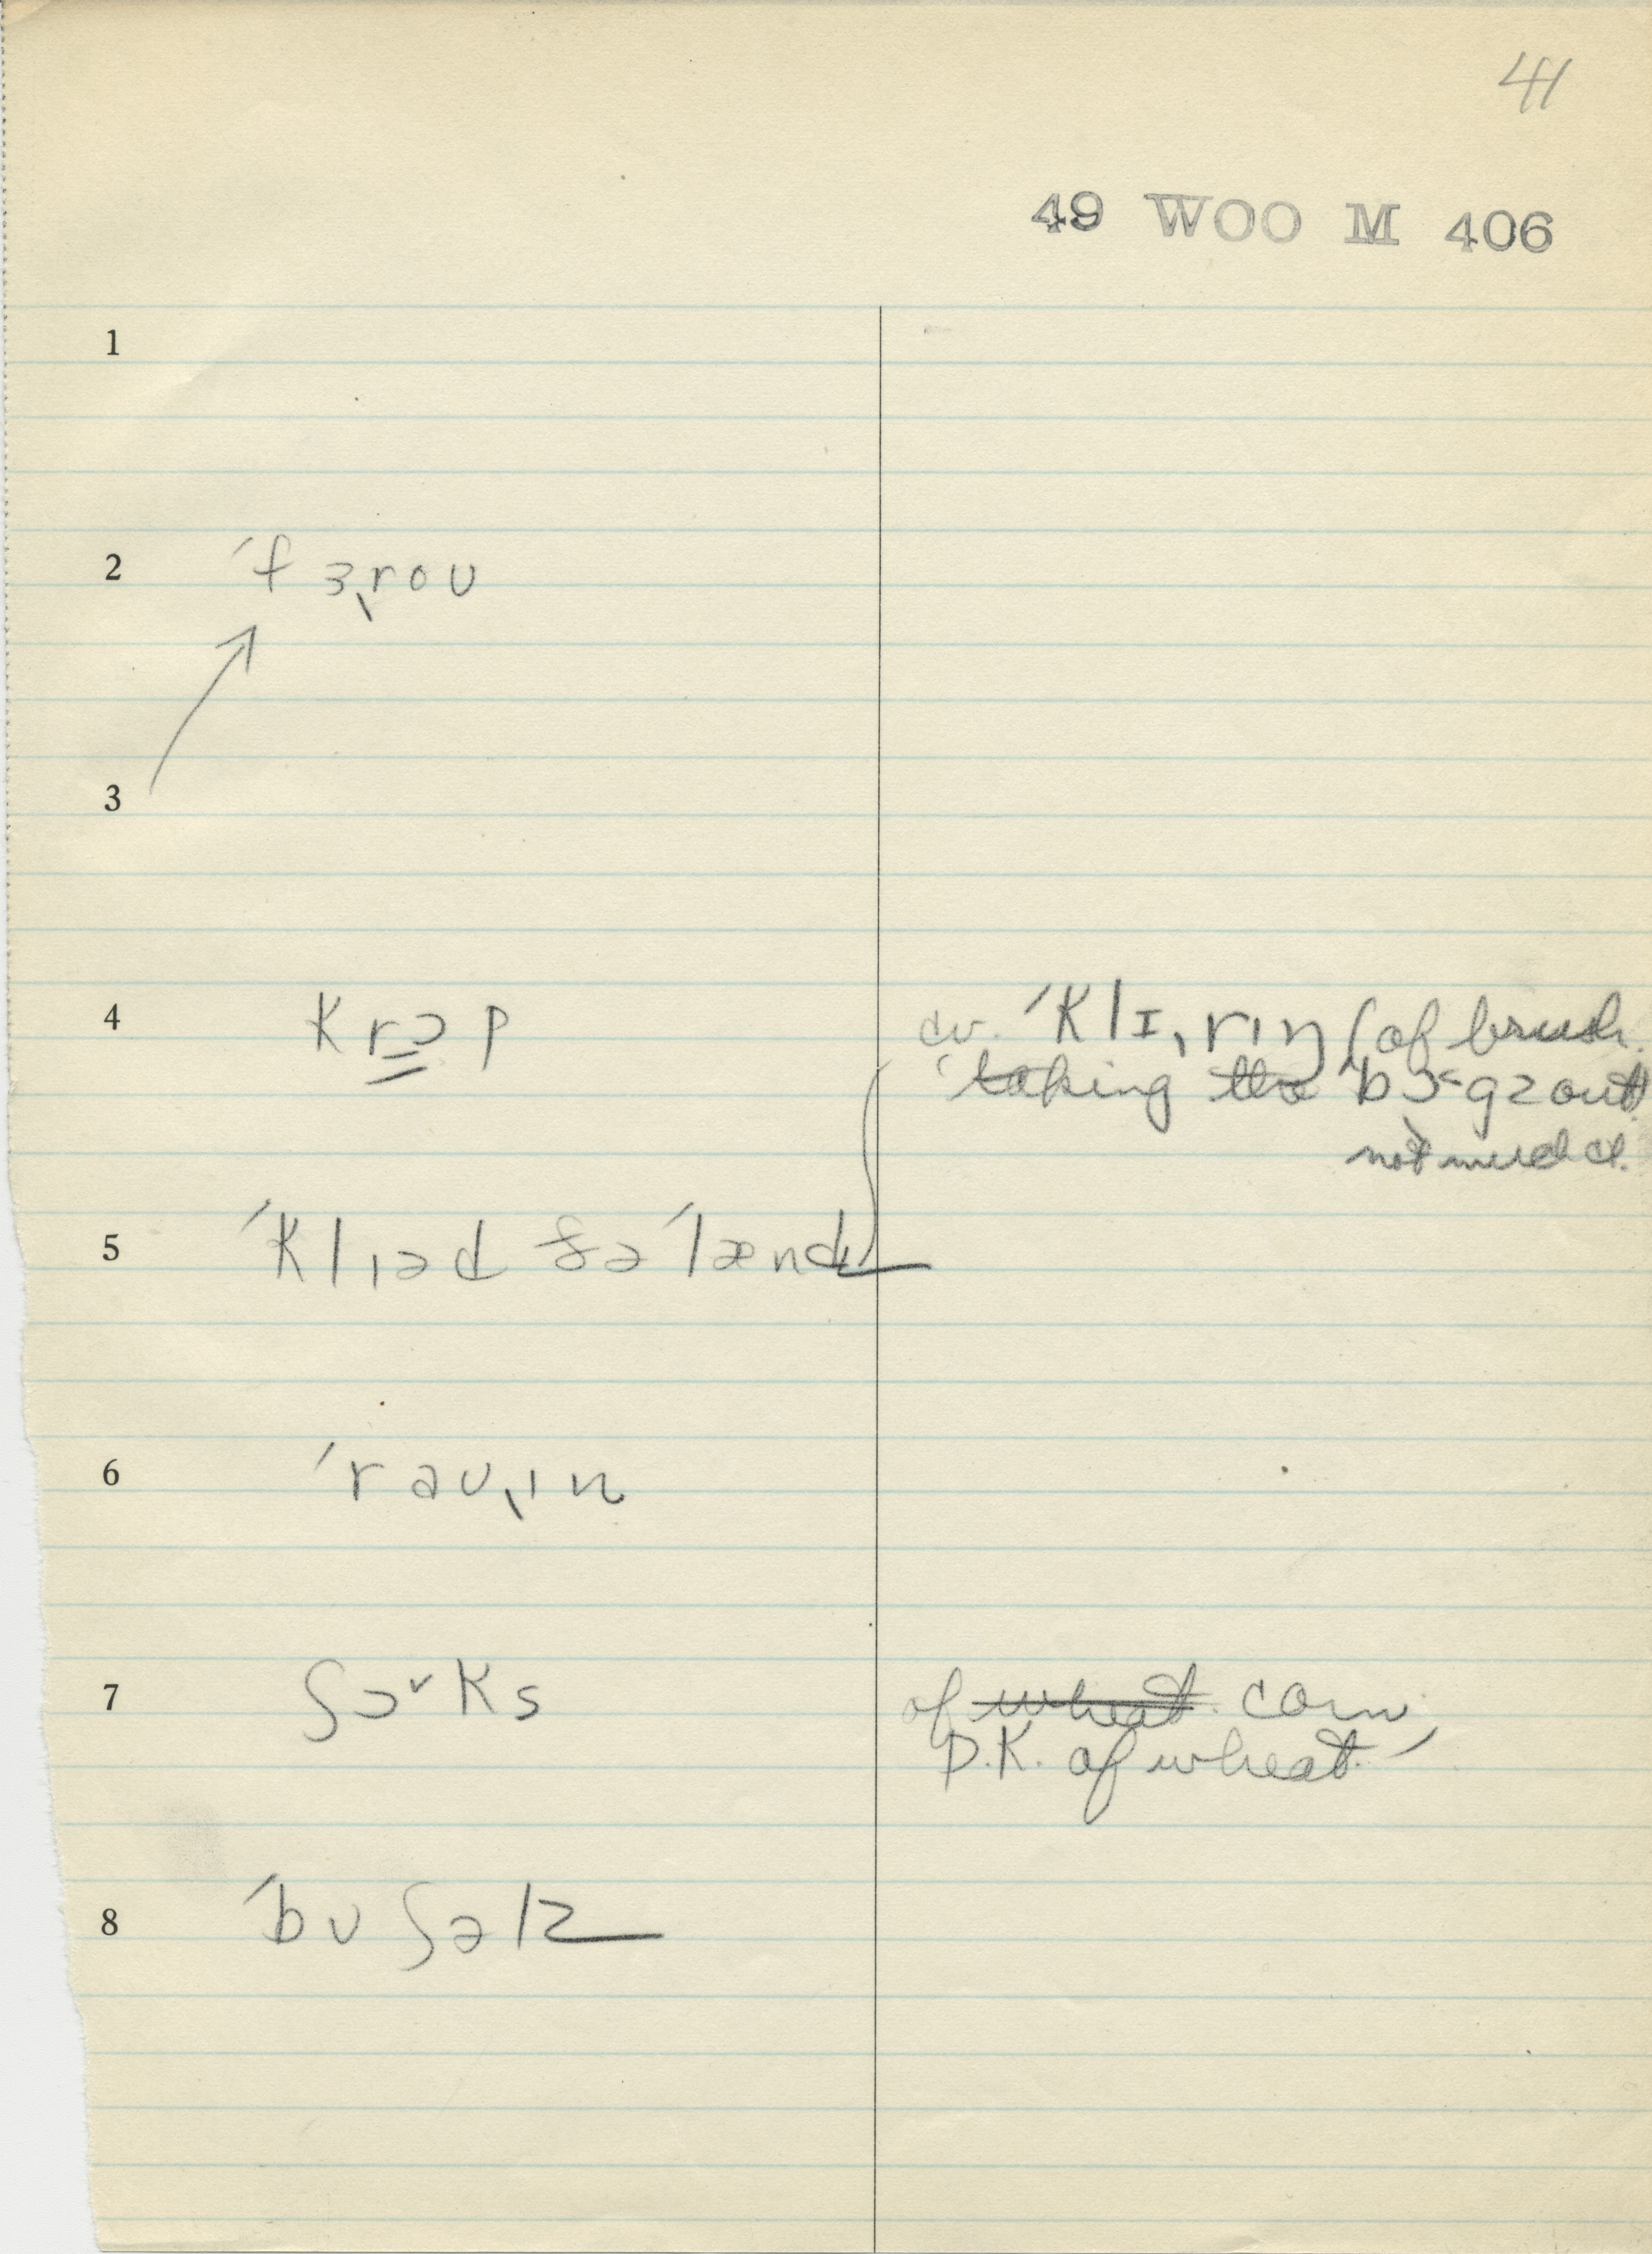 41
49 WOO M 406
1
2 ˈfɜˌroʊ
3
4 krɔp
cv. ˈklɪˌrɪŋ (of brush.
taking the out
not much cl.
5 ˈklɪəd ðə ˈlænd
6 ˈrəʊˌɪn
7 ʃɔ˅ks
of wheat corn,
D.K. of wheat.
8 ˈbʊʃəlz